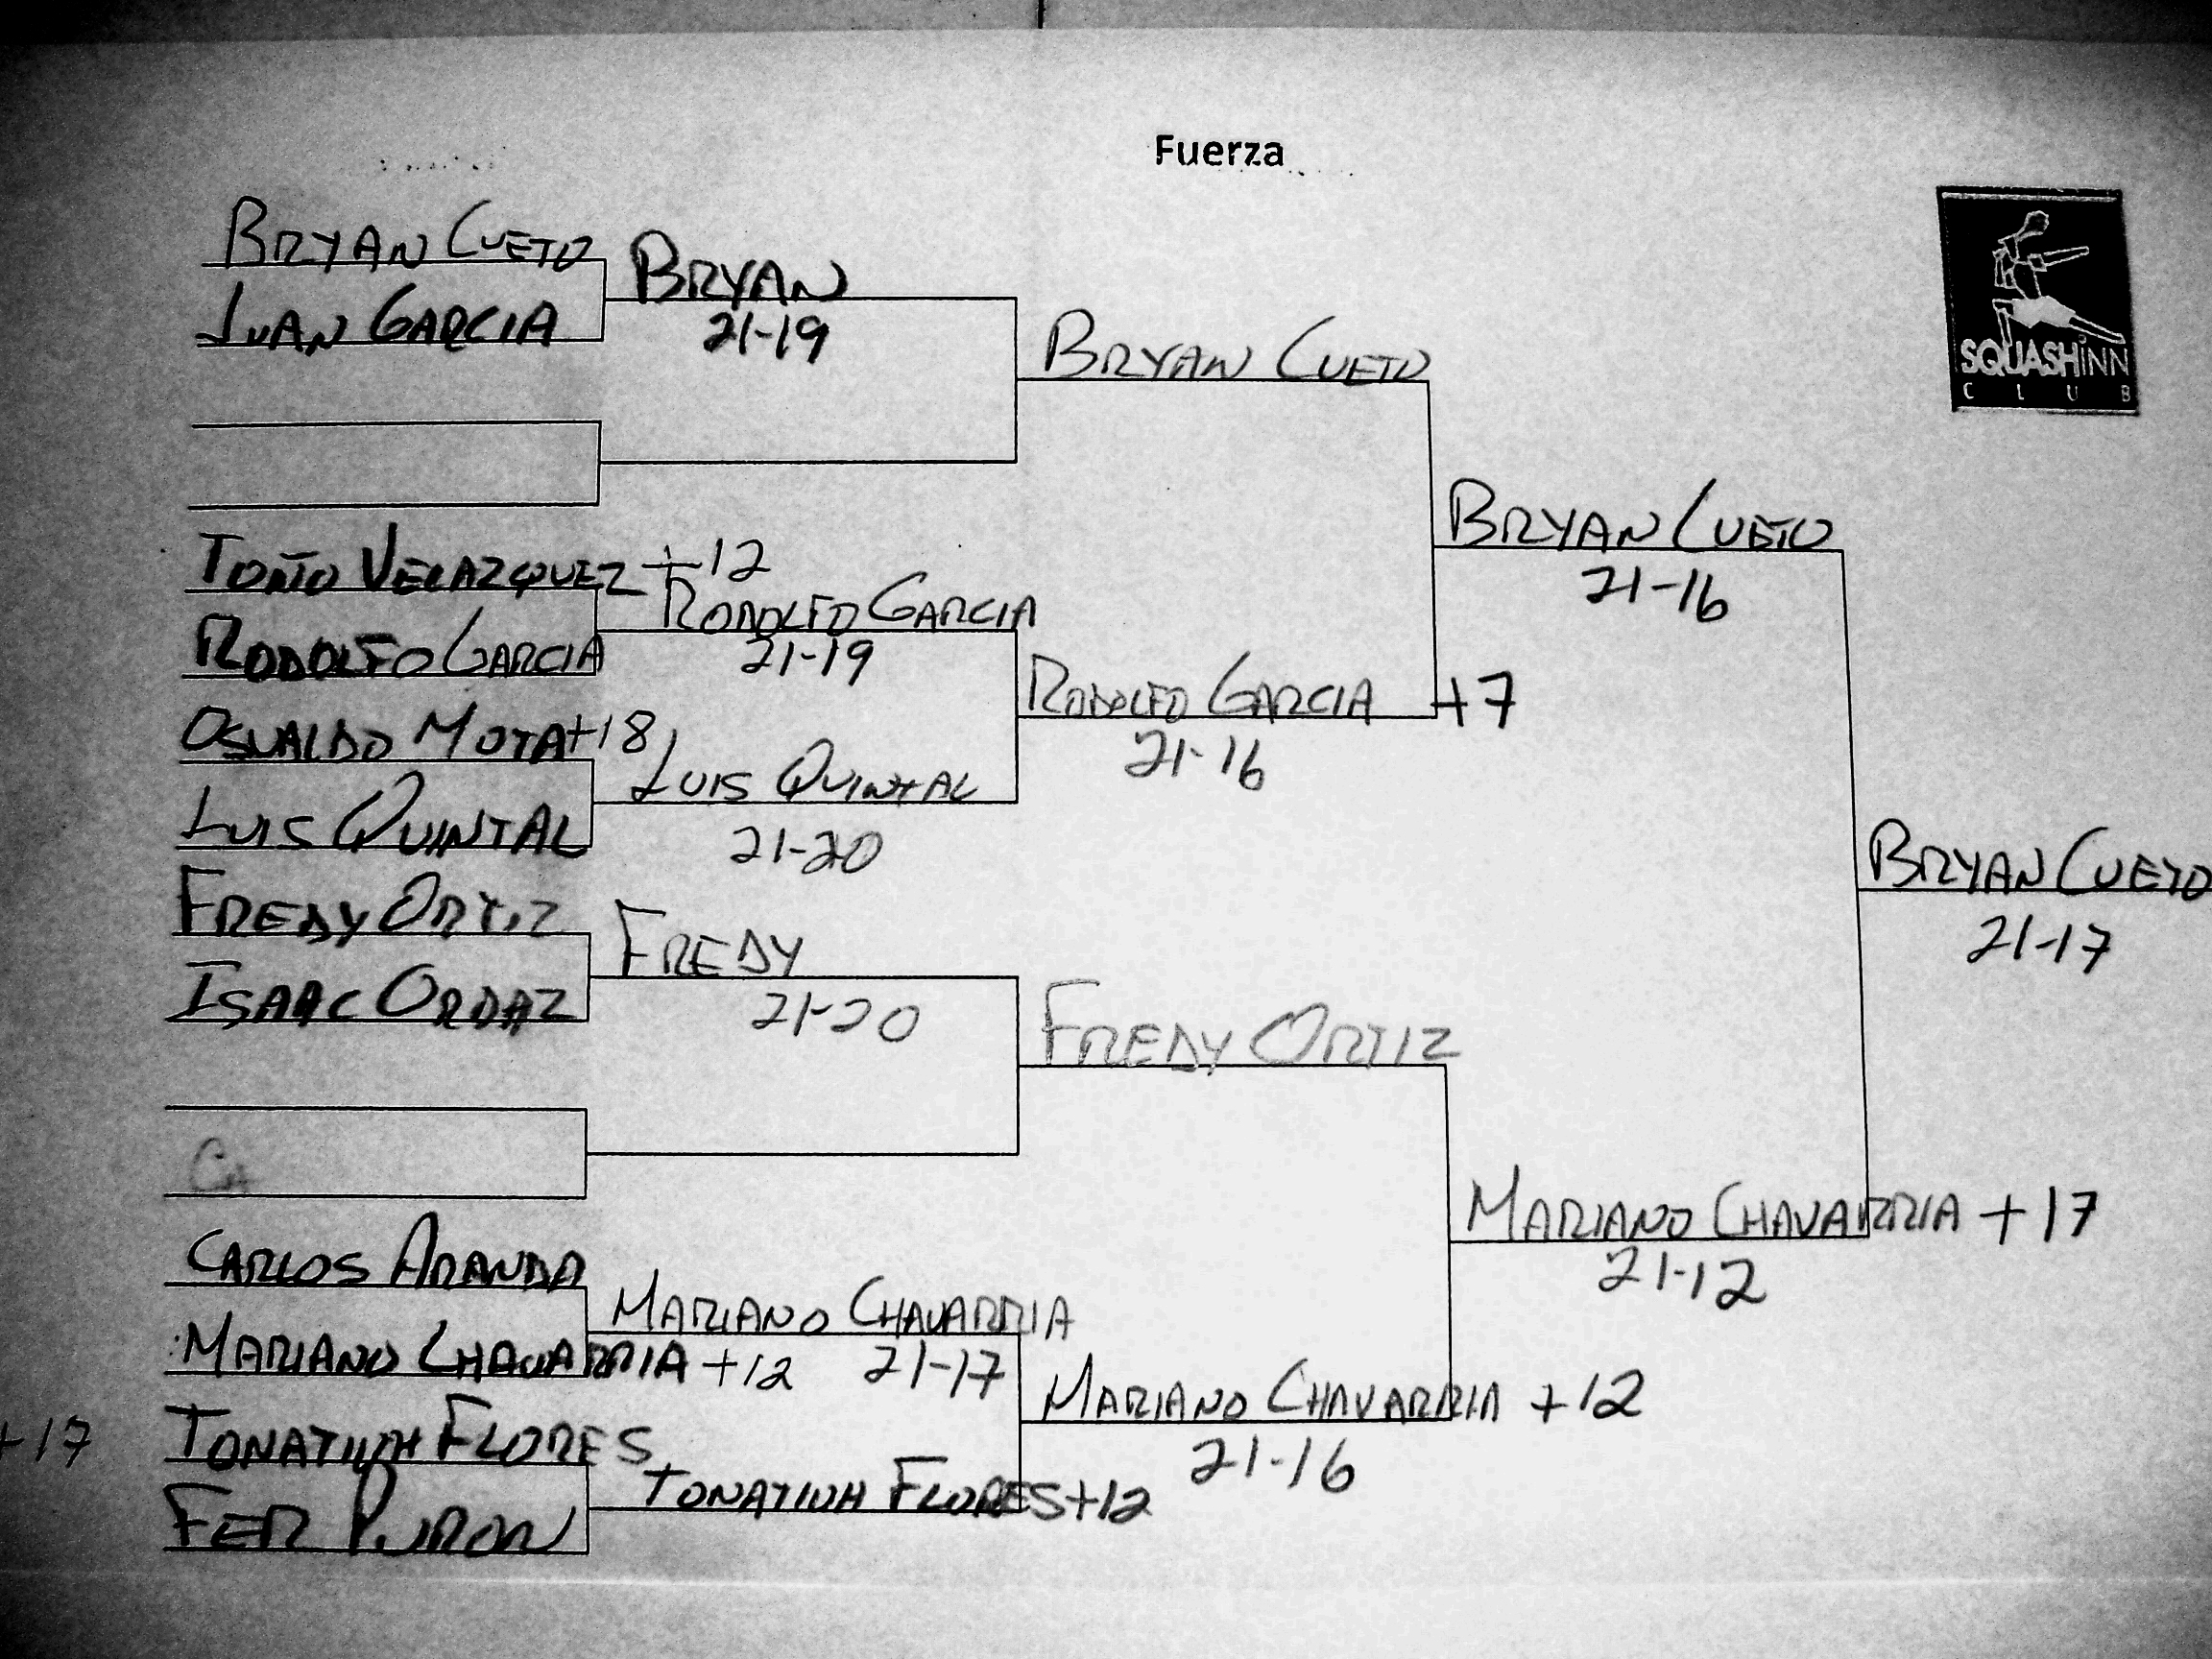 Fuerza
SQUASHINN
CLUB
BRYAN CUETO
JUAN GARCIA
BRYAN
21-19
BRYAN CUETO
TOÑO VELAZQUEZ +12
RODOLFO GARCIA
RODOLFO GARCIA
21-19
OSVALDO MOTA +18
LUIS QUINTAL
LUIS QUINTAL
21-20
RODOLFO GARCIA +7
21-16
BRYAN CUETO
21-16
FREDY ORTIZ
ISAAC ORDAZ
FREDY
21-20
FREDY ORTIZ
CA
CARLOS ARANDA
MARIANO CHAVARRIA +12
MARIANO CHAVARRIA
21-17
+17 TONATIUH FLORES
FER PURON
TONATIUH FLORES +12
MARIANO CHAVARRIA +12
21-16
MARIANO CHAVARRIA +17
21-12
BRYAN CUETO
21-17